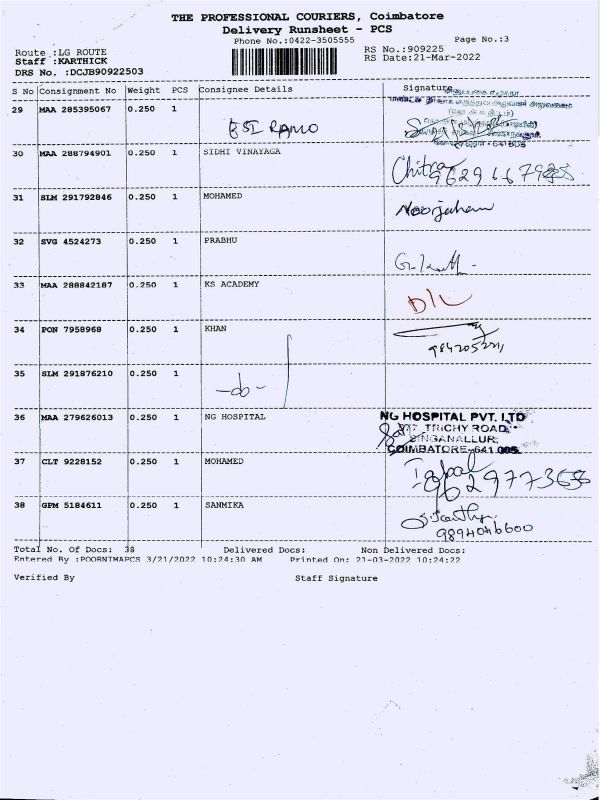 THE PROFESSIONAL COURIERS, Coimbatore
Delivery Runsheet - PCS
Phone No.:0422-3505555 Page No.:3
Route :LG ROUTE RS No.:909225
Staff :KARTHICK RS Date:21-Mar-2022
DRS No. :DCJB90922503
S No Consignment No Weight PCS Consignee Details Signature
29 MAA 285395067 0.250 1
30 MAA 288794901 0.250 1 SIDHI VINAYAGA
Chitra
31 SLM 291792846 0.250 1 MOHAMED
Noorjahan
32 SVG 4524273 0.250 1 PRABHU
33 MAA 288842187 0.250 1 KS ACADEMY
D/L
34 PON 7958968 0.250 1 KHAN
35 SLM 291876210 0.250 1
-do-
36 MAA 279626013 0.250 1 NG HOSPITAL
NG HOSPITAL PVT. LTD
TRICHY ROAD
SINGANALLUR,
COIMBATORE-641 005.
37 CLT 9228152 0.250 1 MOHAMED
38 GPM 5184611 0.250 1 SANMIKA
9894046600
Total No. Of Docs: 38 Delivered Docs: Non Delivered Docs:
Entered By :POORNIMAPCS 3/21/2022 10:24:30 AM Printed On: 21-03-2022 10:24:22
Verified By Staff Signature